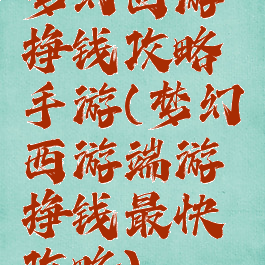 梦幻西游
挣钱攻略
手游(梦幻
西游端游
挣钱最快
攻略)